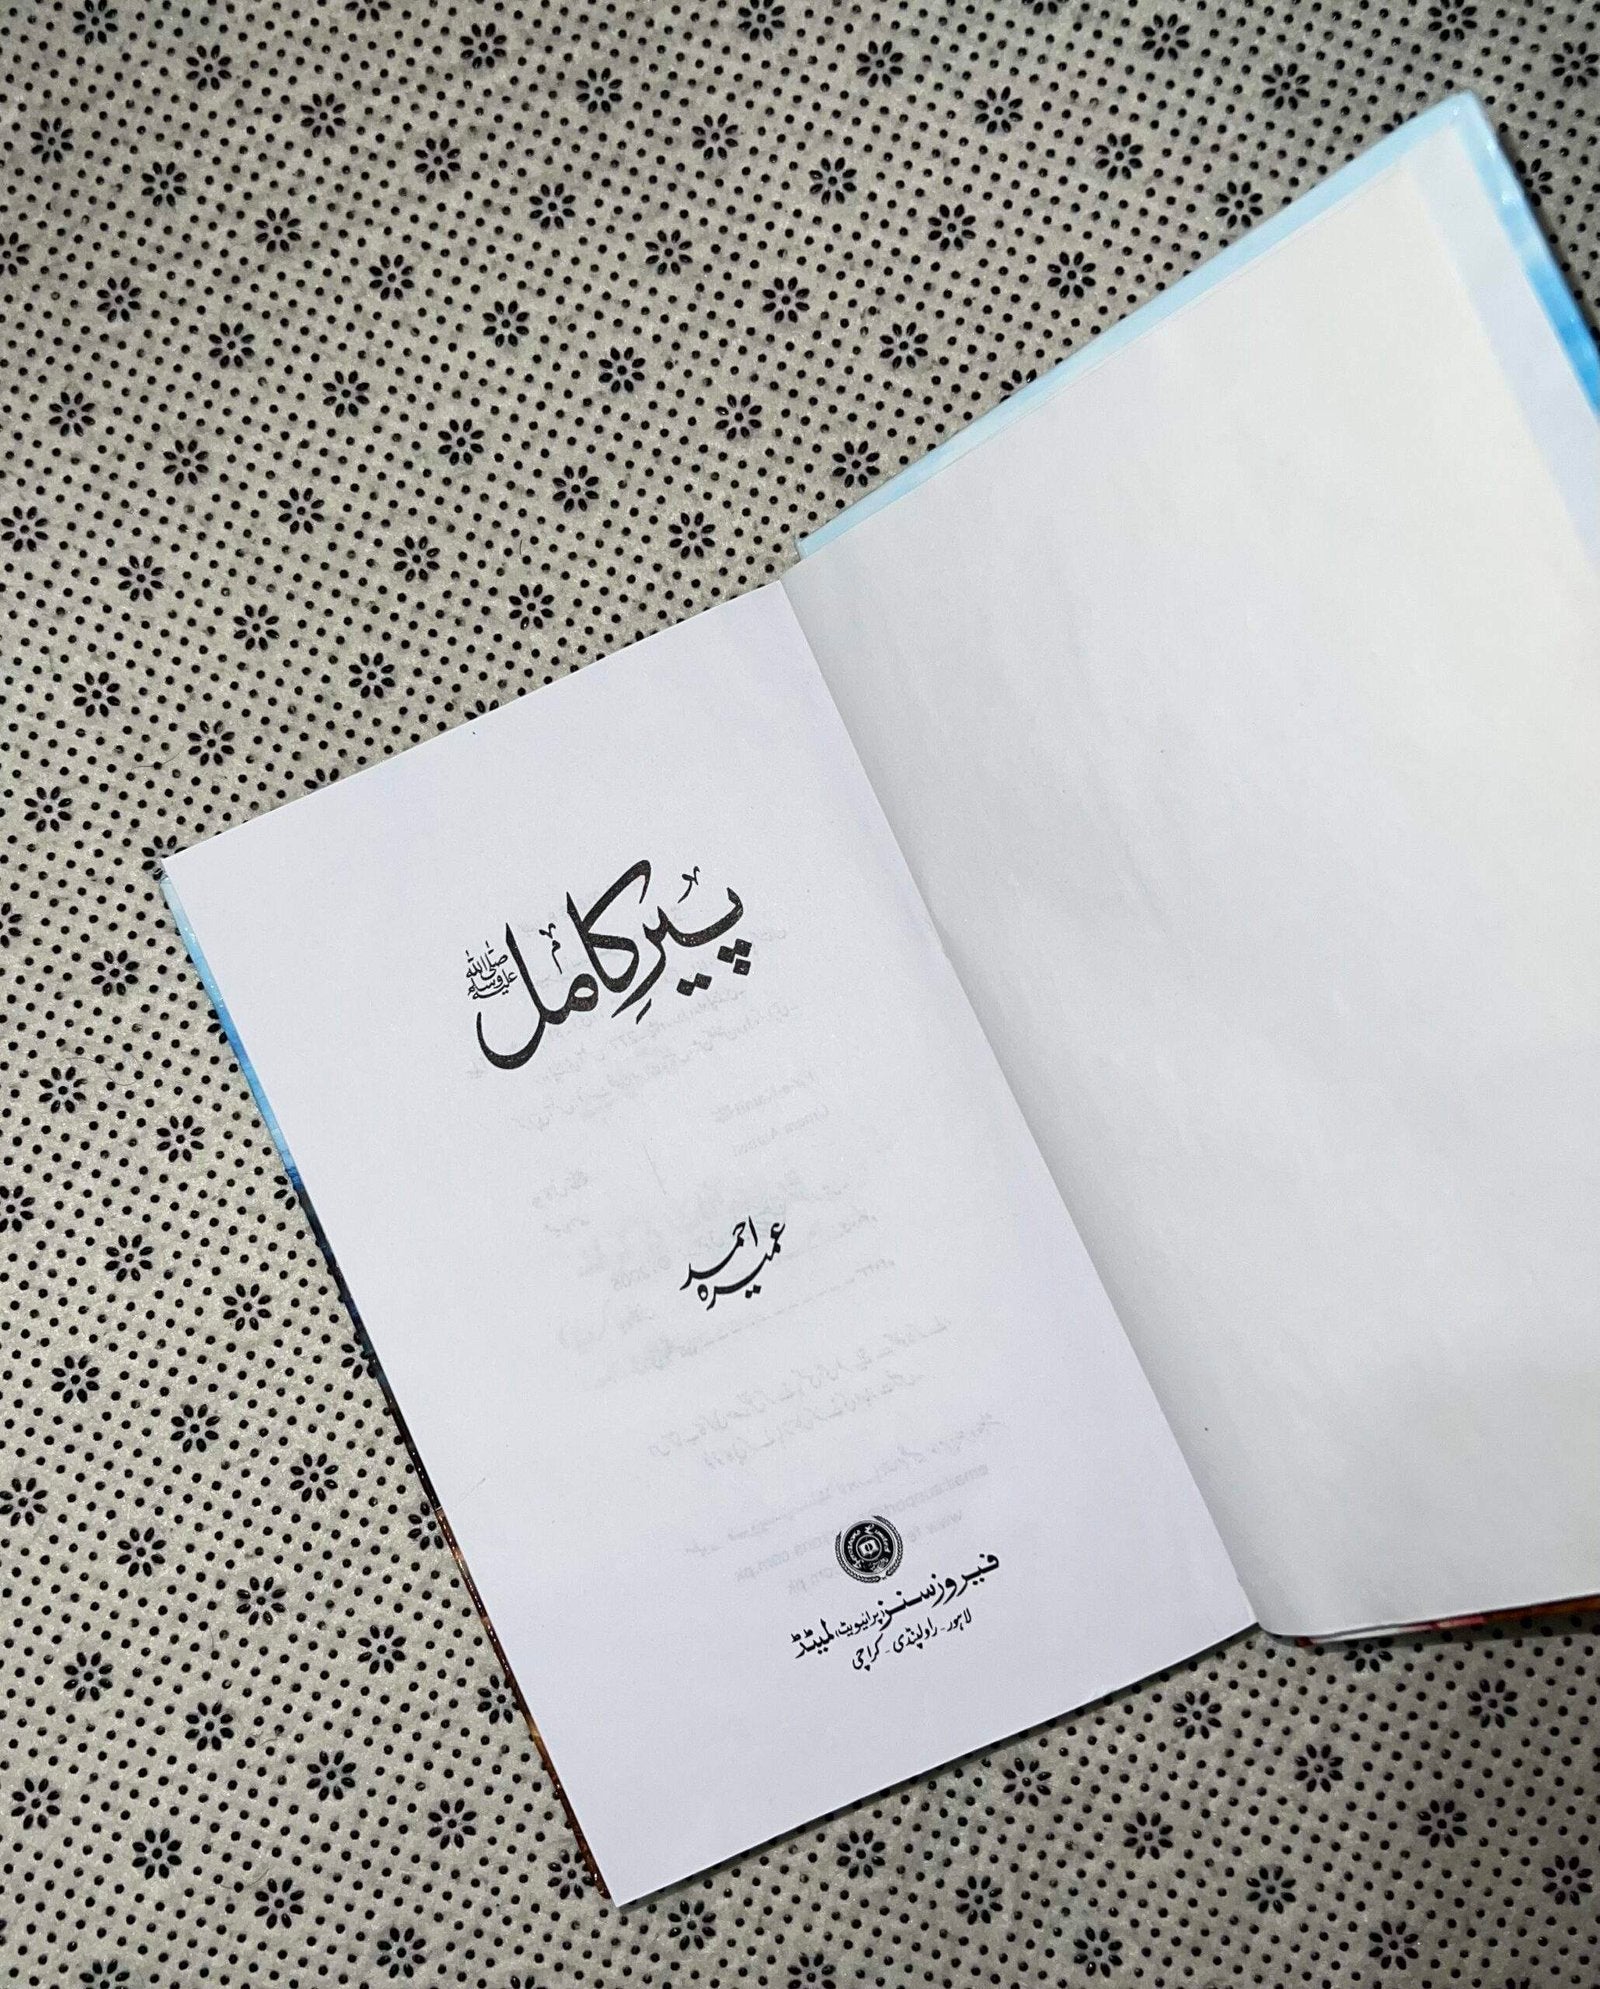 پیرِ کامل صلی اللہ علیہ وسلم
عمیرہ احمد
فیروز سنز پرائیویٹ، لمیٹڈ
لاہور۔ راولپنڈی۔ کراچی